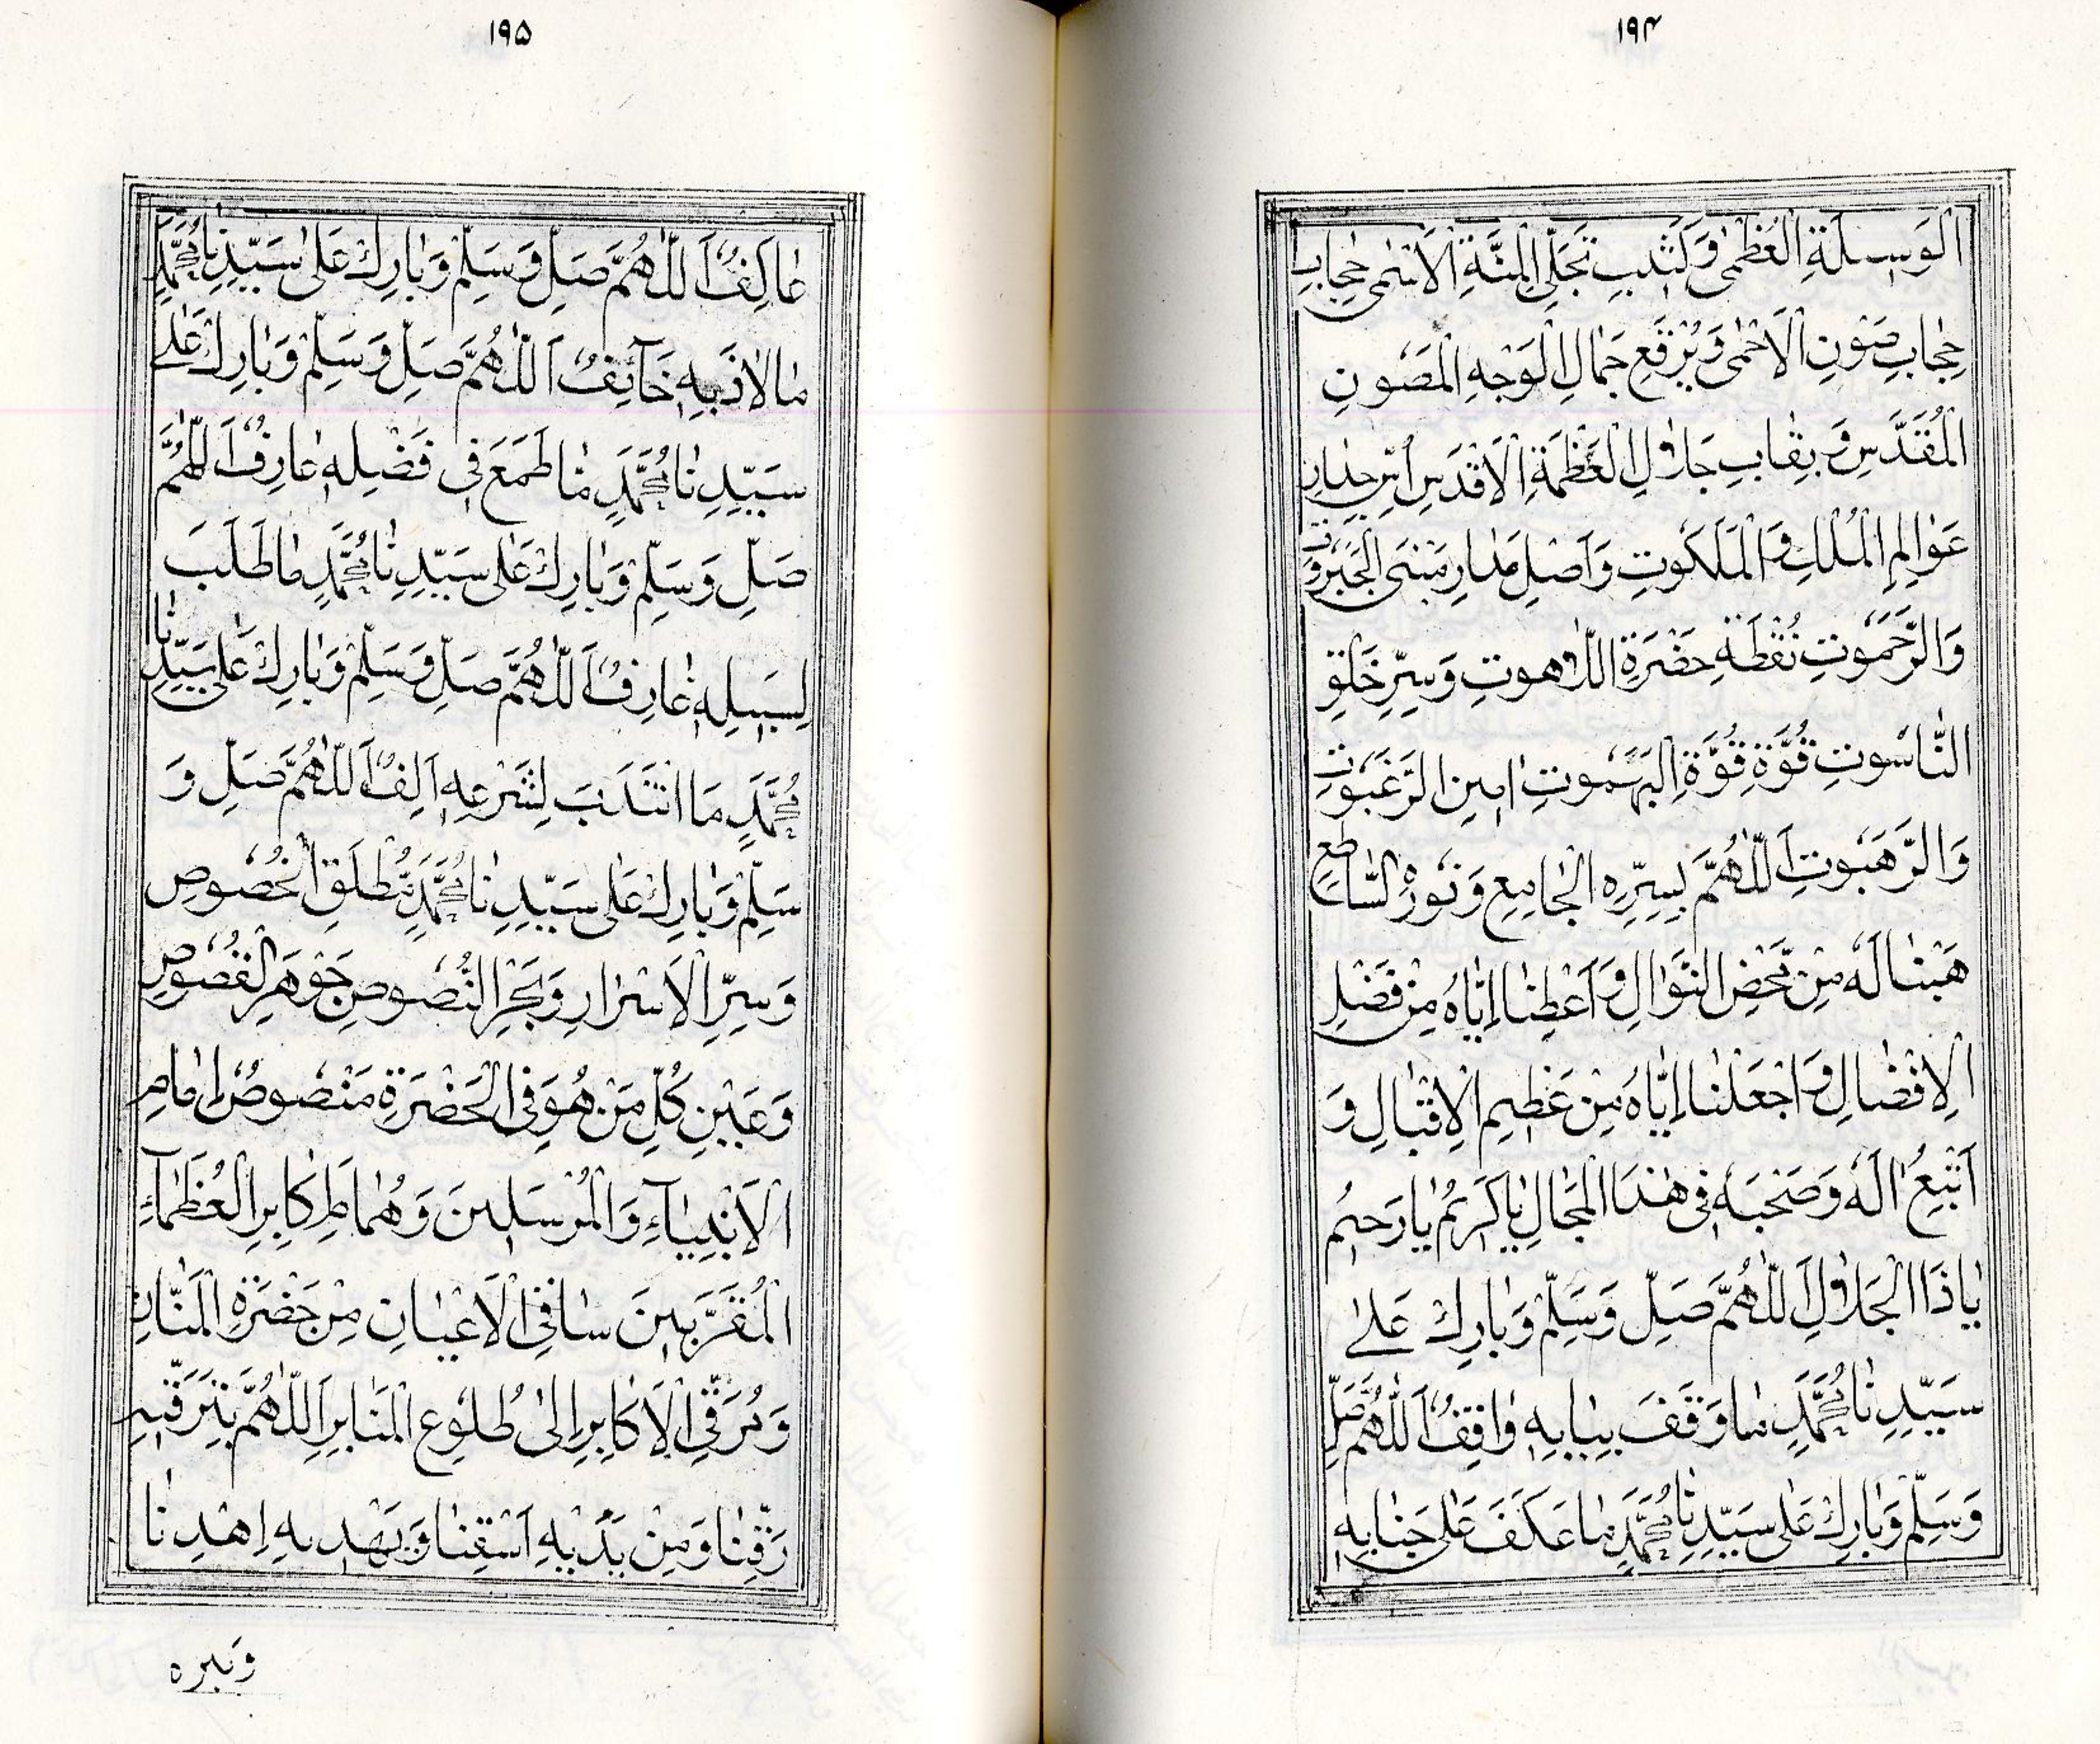 ١٩۴
الْوَسِيلَةِ الْعُظْمٰى وَكَثِيبِ تَجَلِّى الْمِنَّةِ الْاَسْمٰى حِجَابِ
حِجَابِ صَوْنِ الْاَحْمٰى وَبُرْقَعِ جَمَالِ الْوَجْهِ الْمَصُونِ
الْمُقَدَّسِ وَنِقَابِ جَلَالِ الْعَظَمَةِ الْاَقْدَسِ اُسِّ جِدَارِ
عَوَالِمِ الْمُلْكِ وَالْمَلَكُوتِ وَاَصْلِ مَدَارِ مَبْنَى الْجَبَرُوتِ
وَالرَّحَمُوتِ نُقْطَةِ حَضْرَةِ اللَّاهُوتِ وَسِرِّ خَلْقِ
النَّاسُوتِ قُوَّةِ قُوَّةِ الْبَهَمُوتِ اَمِينِ الرَّغَبُوتِ
وَالرَّهَبُوتِ اَللّٰهُمَّ بِسِرِّهِ الْجَامِعِ وَنُورِهِ السَّاطِعِ
هَبْنَا لَهُ مِنْ مَحْضِ النَّوَالِ وَاَعْطِنَا اِيَّاهُ مِنْ فَضْلِ
الْاِفْضَالِ وَاجْعَلْنَا اِيَّاهُ مِنْ عَظِيمِ الْاِقْبَالِ وَ
اَتْبِعْ اٰلَهُ وَصَحْبَهُ فِى هٰذَا الْمَجَالِ يَا كَرِيمُ يَا رَحِيمُ
يَا ذَا الْجَلَالِ اَللّٰهُمَّ صَلِّ وَسَلِّمْ وَبَارِكْ عَلٰى
سَيِّدِنَا مُحَمَّدٍ مَا وَقَفَ بِبَابِهِ وَاقِفٌ اَللّٰهُمَّ صَلِّ
وَسَلِّمْ وَبَارِكْ عَلٰى سَيِّدِنَا مُحَمَّدٍ مَا عَكَفَ عَلٰى جَنَابِهِ
١٩۵
عَاكِفٌ اَللّٰهُمَّ صَلِّ وَسَلِّمْ وَبَارِكْ عَلٰى سَيِّدِنَا مُحَمَّدٍ
مَا لَاذَ بِهِ خَآئِفٌ اَللّٰهُمَّ صَلِّ وَسَلِّمْ وَبَارِكْ عَلٰى
سَيِّدِنَا مُحَمَّدٍ مَا طَمَعَ فِى فَضْلِهِ عَارِفٌ اَللّٰهُمَّ
صَلِّ وَسَلِّمْ وَبَارِكْ عَلٰى سَيِّدِنَا مُحَمَّدٍ مَا طَلَبَ
لِسَبِيلِهِ عَارِفٌ اَللّٰهُمَّ صَلِّ وَسَلِّمْ وَبَارِكْ عَلٰى سَيِّدِنَا
مُحَمَّدٍ مَا انْتَدَبَ لِشَرْعِهِ اَلِفٌ اَللّٰهُمَّ صَلِّ وَ
سَلِّمْ وَبَارِكْ عَلٰى سَيِّدِنَا مُحَمَّدٍ مُطْلَقِ الْخُصُوصِ
وَسِرِّ الْاَسْرَارِ وَبَحْرِ النُّصُوصِ جَوْهَرِ الْفُصُوصِ
وَعَيْنِ كُلِّ مَنْ هُوَ فِى الْحَضْرَةِ مَنْصُوصٌ اِمَامِ
الْاَنْبِيَآءِ وَالْمُرْسَلِينَ وَهُمَامِ اَكَابِرِ الْعُظَمَآءِ
الْمُقَرَّبِينَ سَاقِى الْاَعْيَانِ مِنْ حَضْرَةِ الْمَنَّانِ
وَمُرَقِّى الْاَكَابِرِ اِلٰى طُلُوعِ الْمَنَابِرِ اَللّٰهُمَّ بِتَرَقِّيهِ
رَقِّنَا وَمِنْ يَدَيْهِ اَسْقِنَا وَبِهَدْيِهِ اِهْدِنَا
وَبِبِرِّهِ